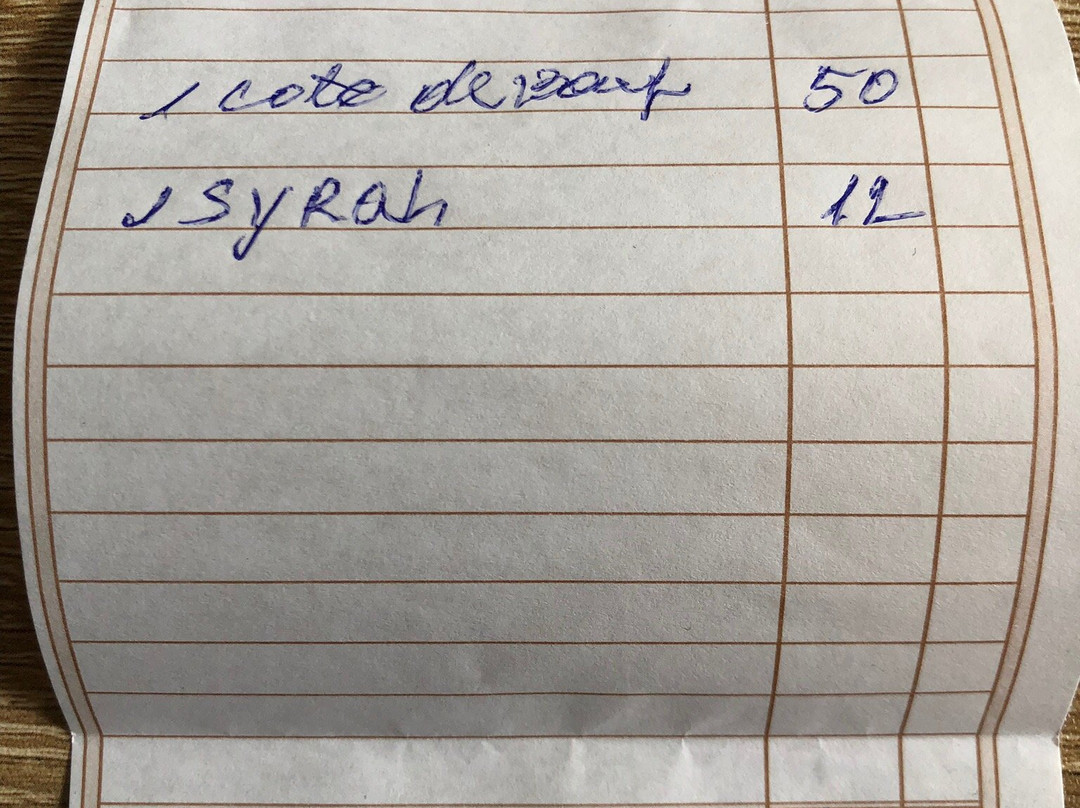 1 cote de boeuf 50
1 SyRah 12